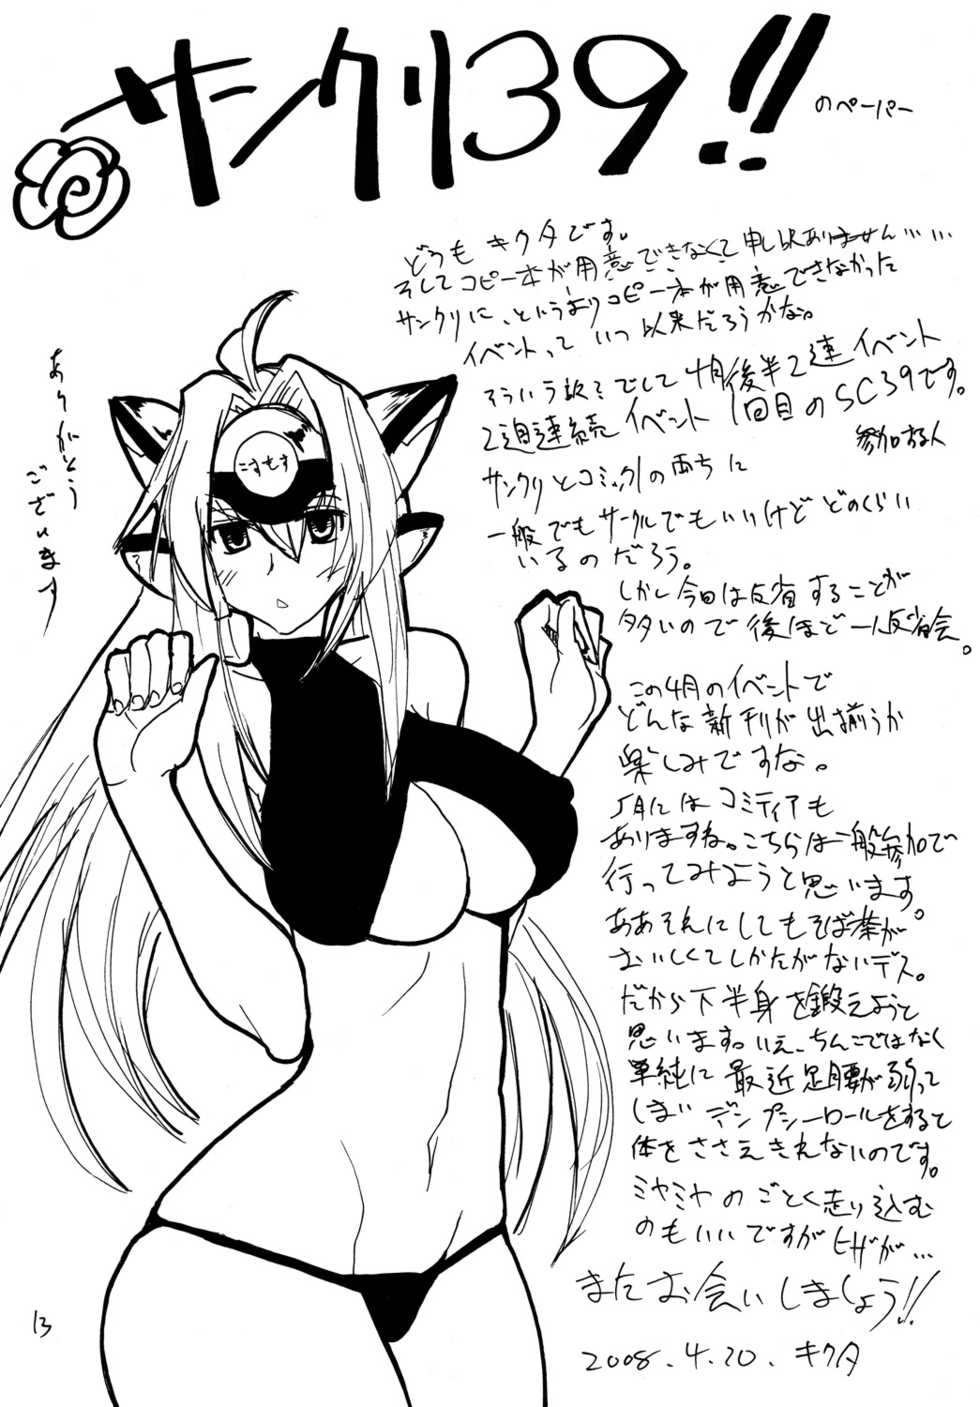 サンクリ39!!
のペーパー
どうも キクタです。
そしてコピー本が用意できなくて申し訳ありません……
サンクリに、というよりコピー本が用意できなかった
イベントって いつ以来だろうかな。
そういう訳でして4月後半2連イベント
2週連続イベント 1回目のSC39です。
参加する人
サンクリとコミック1の両方に
一般でもサークルでもいいけど どのくらい
いるのだろう。
しかし今回は反省することが
多いので後ほど一人反省会。
この4月のイベントで
どんな新刊が出揃うか
楽しみですな。
5月にはコミティアも
ありますね。こちらは一般参加で
行ってみようと思います。
ああそれにしてもそば茶が
おいしくてしかたがないデス。
だから下半身を鍛えようと
思います。いえ、ちんこではなく
単純に最近足腰が弱って
しまい デンプシーロールをすると
体をささえきれないのです。
ミヤミヤのごとく走り込む
のもいいですが ヒザが…
またお会いしましょう!!
2008.4.20. キクタ
ありがとう
ございます
こすもす
13